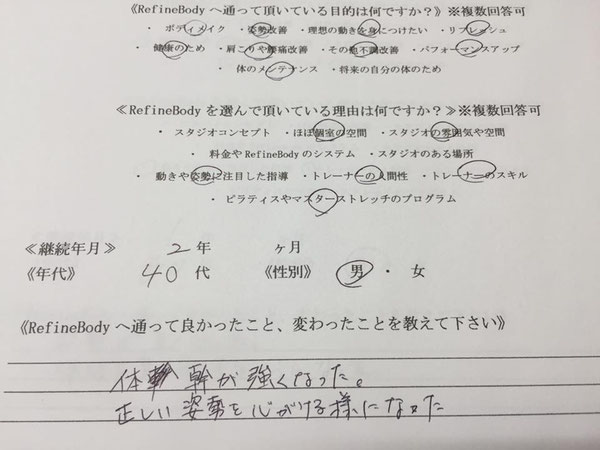 《RefineBodyへ通って頂いている目的は何ですか？》※複数回答可
・ボディメイク ・姿勢改善 ・理想の動きを身につけたい ・リフレッシュ
・健康のため ・肩こりや腰痛改善 ・その他不調改善 ・パフォーマンスアップ
・体のメンテナンス ・将来の自分の体のため
≪RefineBodyを選んで頂いている理由は何ですか？≫※複数回答可
・スタジオコンセプト ・ほぼ個室の空間 ・スタジオの雰囲気や空間
・料金やRefineBodyのシステム ・スタジオのある場所
・動きや姿勢に注目した指導 ・トレーナーの人間性 ・トレーナーのスキル
・ピラティスやマスターストレッチのプログラム
≪継続年月≫ 2年 ヶ月
《年代》 40代 《性別》 男 ・ 女
《RefineBodyへ通って良かったこと、変わったことを教えて下さい》
体幹が強くなった。
正しい姿勢を心がける様になった